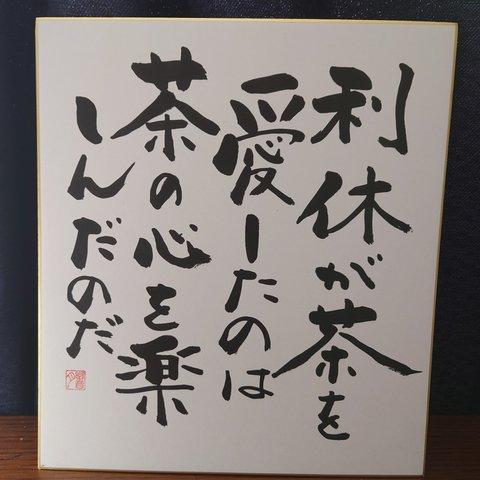 利休が茶を
愛したのは
茶の心を楽
しんだのだ